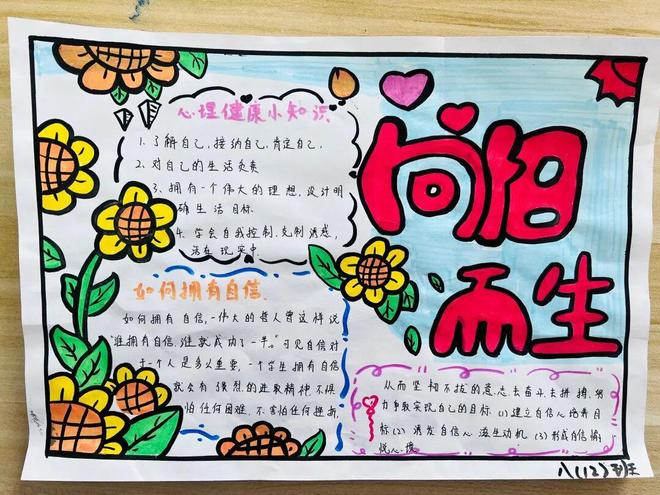 向阳而生
心理健康小知识
1.了解自己,接纳自己,肯定自己.
2、对自己的生活负责
3、拥有一个伟大的理想,设计明
确生活目标.
4、学会自我控制.克制诱惑,
活在现实中.
如何拥有自信.
如何拥有自信,一伟大的哲人曾这样说
"谁拥有自信,谁就成功了一半。"可见自信对
于一个人是多么重要,一个学生拥有自信
就会有强烈的进取精神不惧
怕任何困难,不害怕任何挫折,
从而坚韧不拔的意志去奋斗.去拼搏.努
力争取实现自己的目标.(1)建立自信心培养目
标(2)诱发自信心滋生动机(3)形成自信愉
悦心境
八(12)班